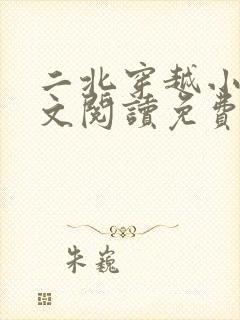 二北穿越小
文閱讀免費
朱巍